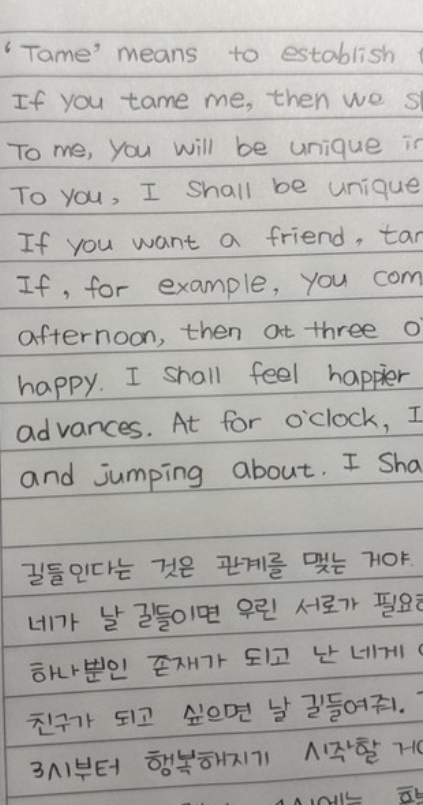 'Tame' means to establish
If you tame me, then we
To me, you will be unique
To you, I Shall be unique
If you want a friend,
If, for example, you
afternoon, then at three
happy. I Shall feel happier
advances. At for o'clock, I
and jumping about. I
길들인다는 것은 관계를 맺는 거야.
네가 날 길들이면 우린 서로가
하나뿐인 존재가 되고 난 네게
친구가 되고 싶으면 날 길들여줘.
3시부터 행복해지기 시작할